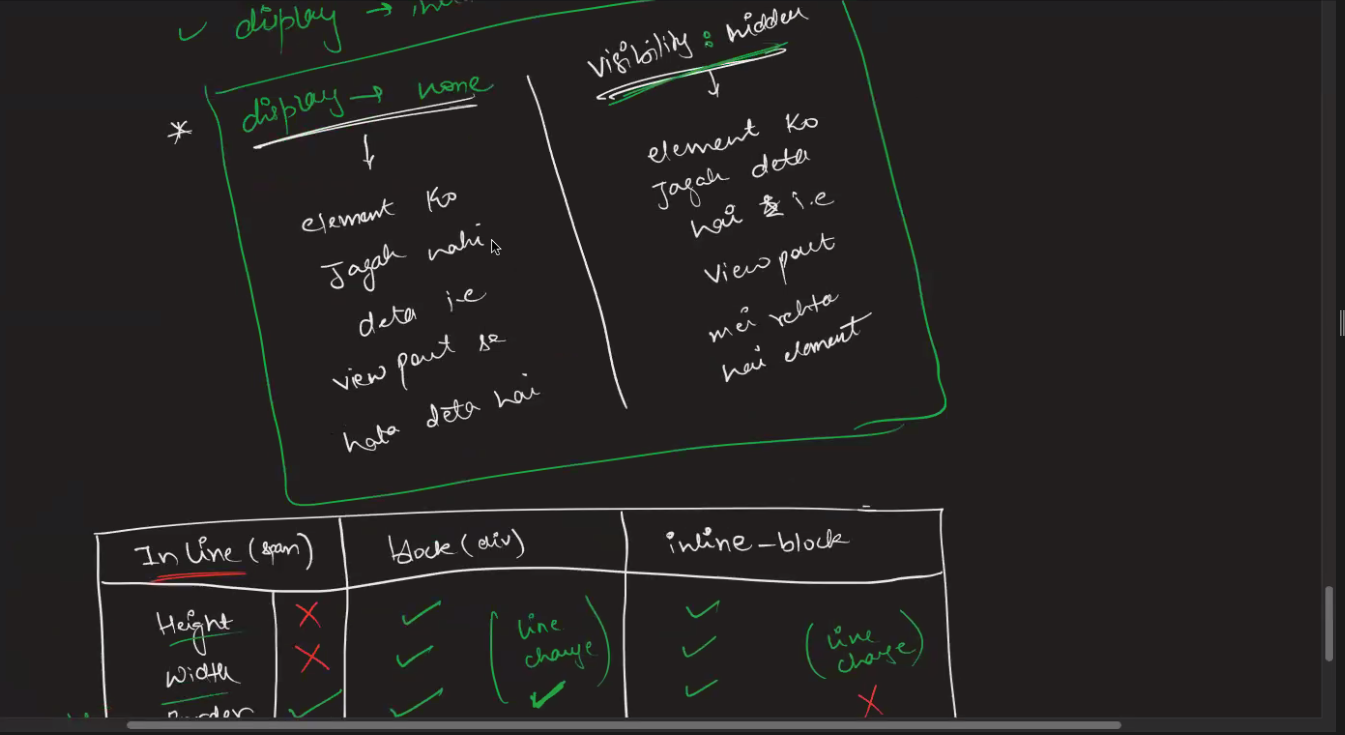 ✓ display →
* display → none
↓
element Ko
Jagah nahi
deta i.e
view port se
hata deta hai
visibility : hidden
↓
element Ko
Jagah deta
hai i.e
View port
mei rehta
hai element
In Line (span) block (div) inline-block
Height ✗ ✓ (line ✓ (line
Width ✗ ✓ change ✓ change)
✓ ✓ ✓) ✓ ✗